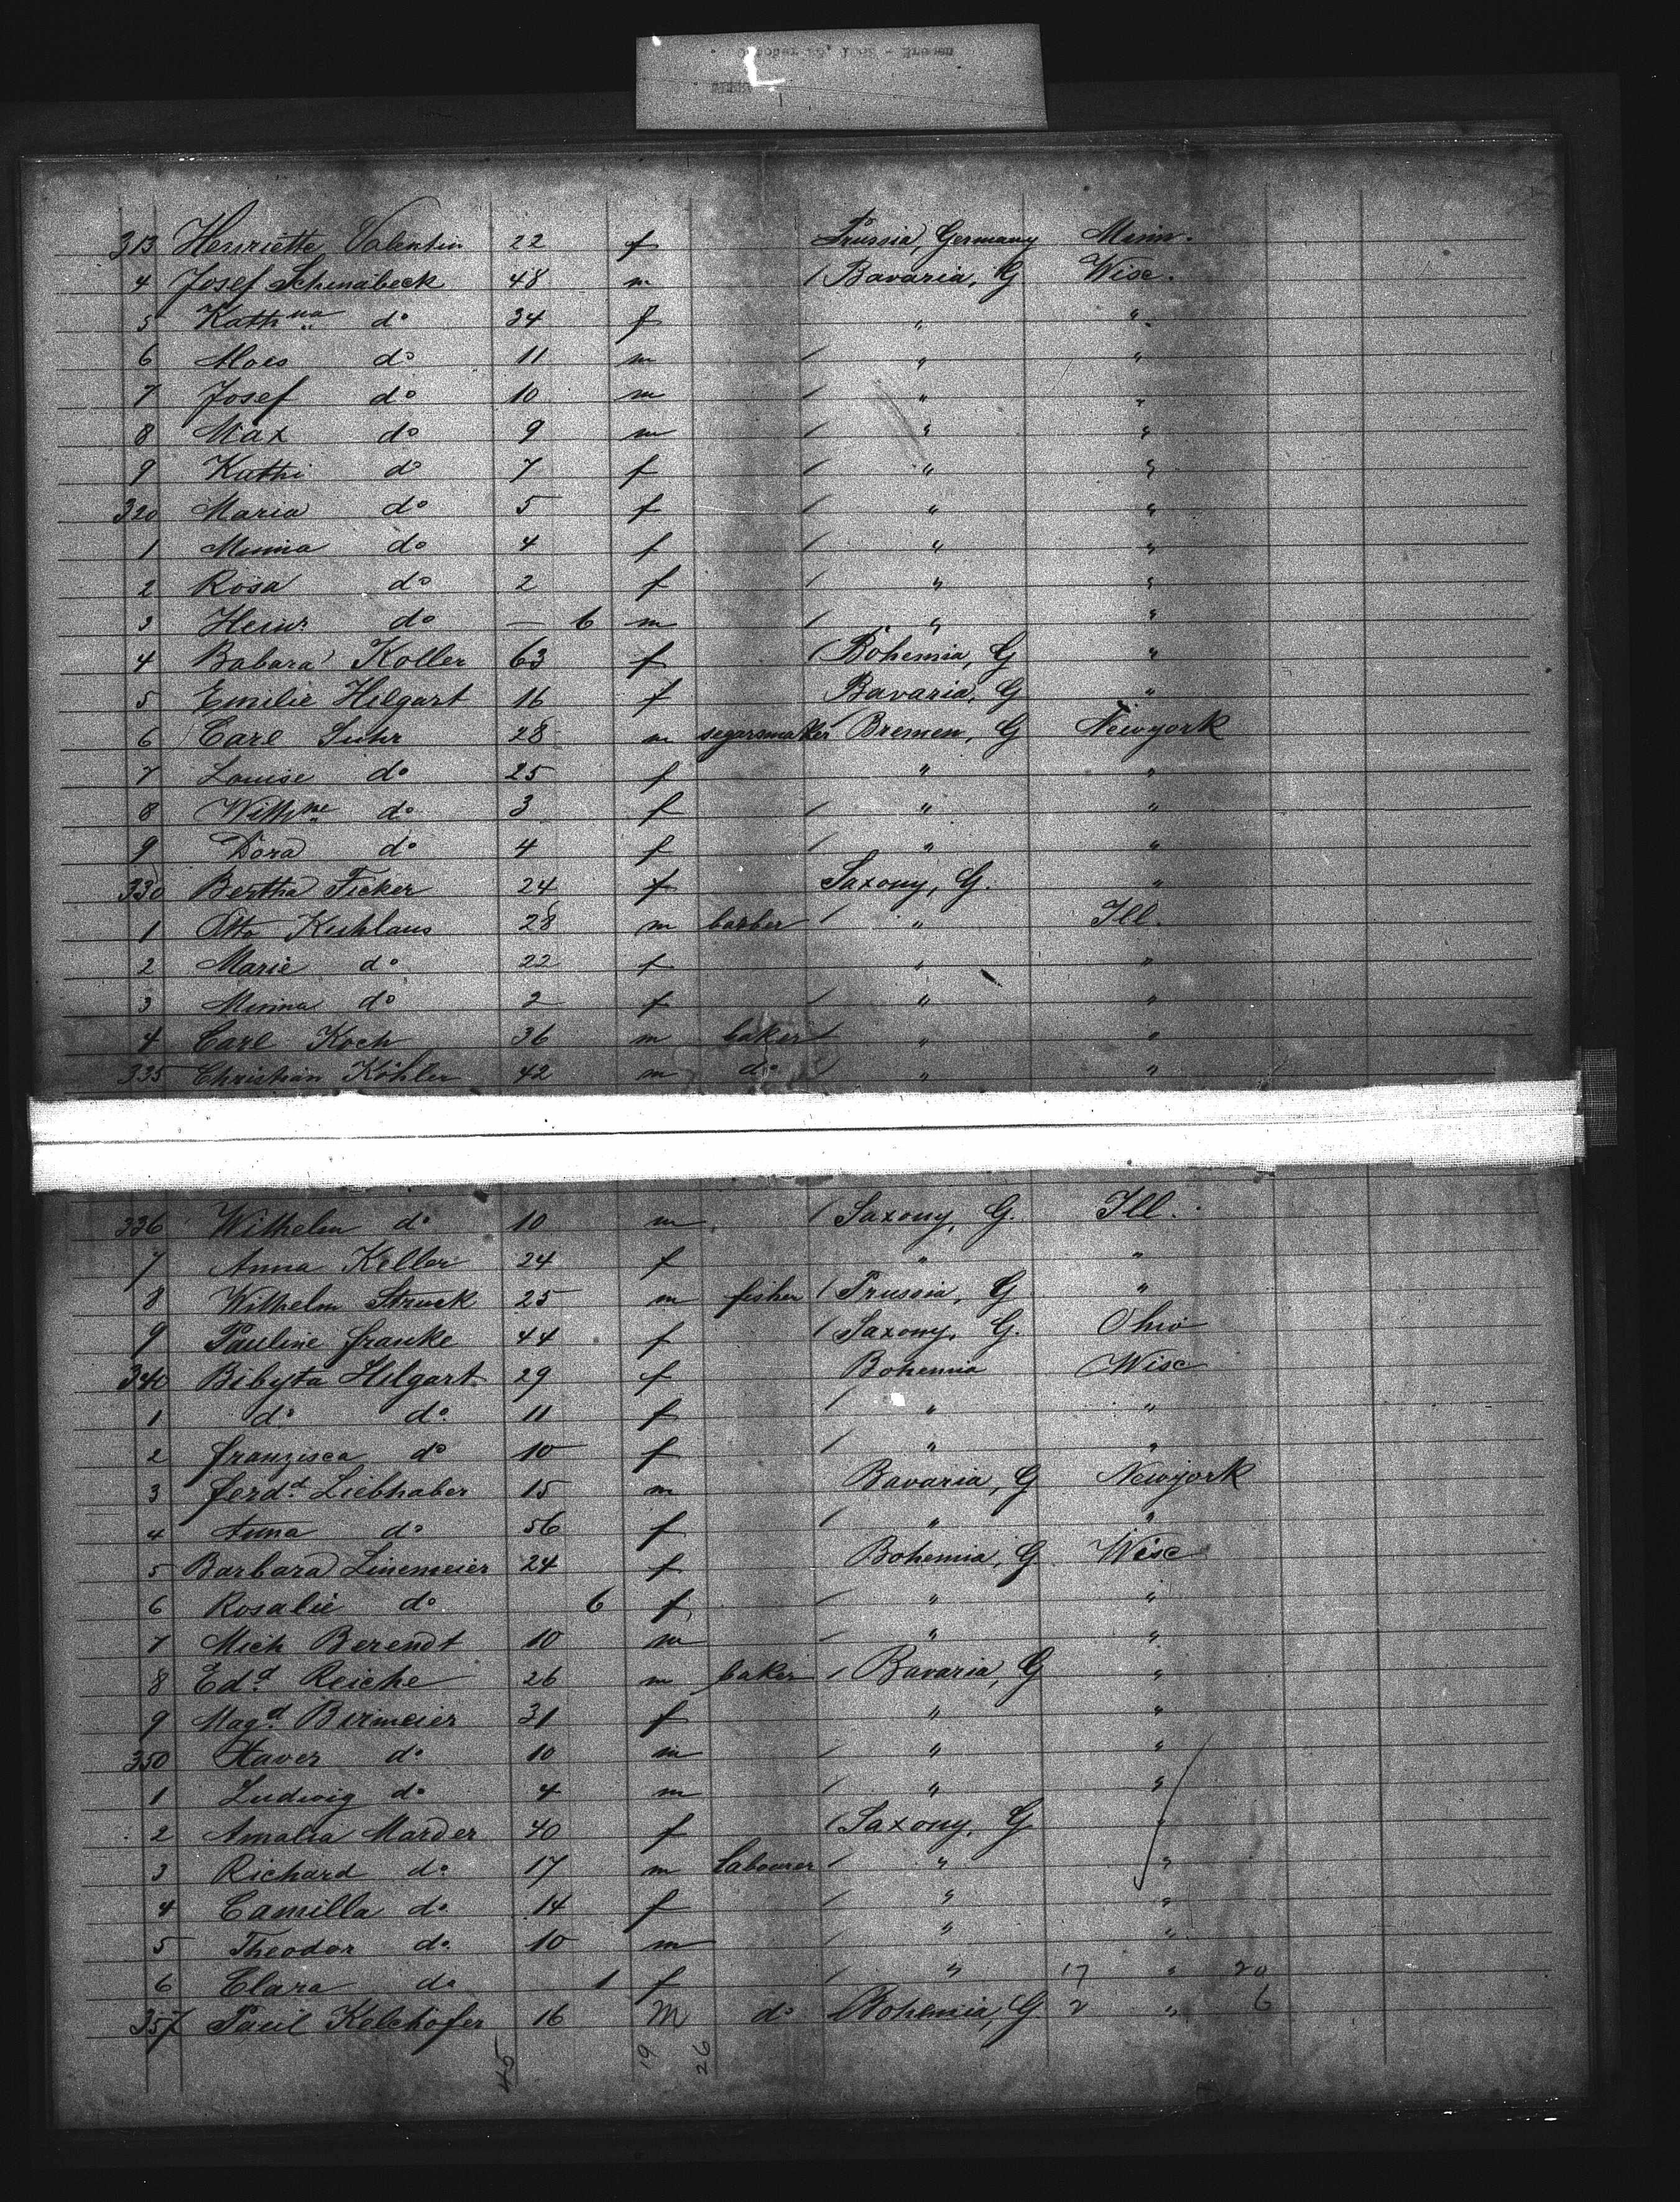 313 Henriette Valentin 22 f Prussia, Germany Minn.
4 Josef Schmabeck 48 m / Bavaria, G Wisc.
5 Kathna do 34 f " "
6 Alois do 11 m / " "
7 Josef do 10 m / " "
8 Max do 9 m / " "
9 Kathi do 7 f / " "
320 Maria do 5 f / " "
1 Minna do 4 f / " "
2 Rosa do 2 f / " "
3 Heinr do — 6 m / " "
4 Babara Koller 63 f / Bohemia, G "
5 Emilie Hilgart 16 f Bavaria, G "
6 Carl Suhr 28 m segarsmaker / Bremen, G Newyork
7 Louise do 25 f " "
8 Wilhne do 3 f / " "
9 Dora do 4 f / " "
330 Bertha Ficker 24 f Saxony, G. "
1 Otto Kuhlaus 28 m barber / " Ill.
2 Marie do 22 f " "
3 Minna do 2 f / " "
4 Carl Koch 36 m baker / " "
335 Christian Köhler 42 m do / " "
336 Wilhelm do 10 m / Saxony, G. Ill.
7 Anna Keller 24 f " "
8 Wilhelm Struck 25 m fisher / Prussia, G "
9 Pauline Franke 44 f / Saxony, G. Ohio
340 Bibyta Hilgart 29 f Bohemia Wisc
1 do do 11 f / " "
2 Franzisca do 10 f / " "
3 Ferdd. Liebhaber 15 m Bavaria, G Newyork
4 Anna do 56 f / " "
5 Barbara Linemeier 24 f Bohemia, G Wisc
6 Rosalie do 6 f / " "
7 Mich Berendt 10 m / " "
8 Edd. Reiche 26 m baker / Bavaria, G "
9 Magd. Birmeier 31 f " "
350 Xaver do 10 m / " "
1 Ludwig do 4 m / " "
2 Amalia Marder 40 f / Saxony, G "
3 Richard do 17 m labourer / " "
4 Camilla do 14 f / " "
5 Theodor do 10 m / " "
6 Clara do 1 f / " 17 " 20
357 Paul Kelchofer 16 M do Bohemia, G 2 " 6
45 19 26